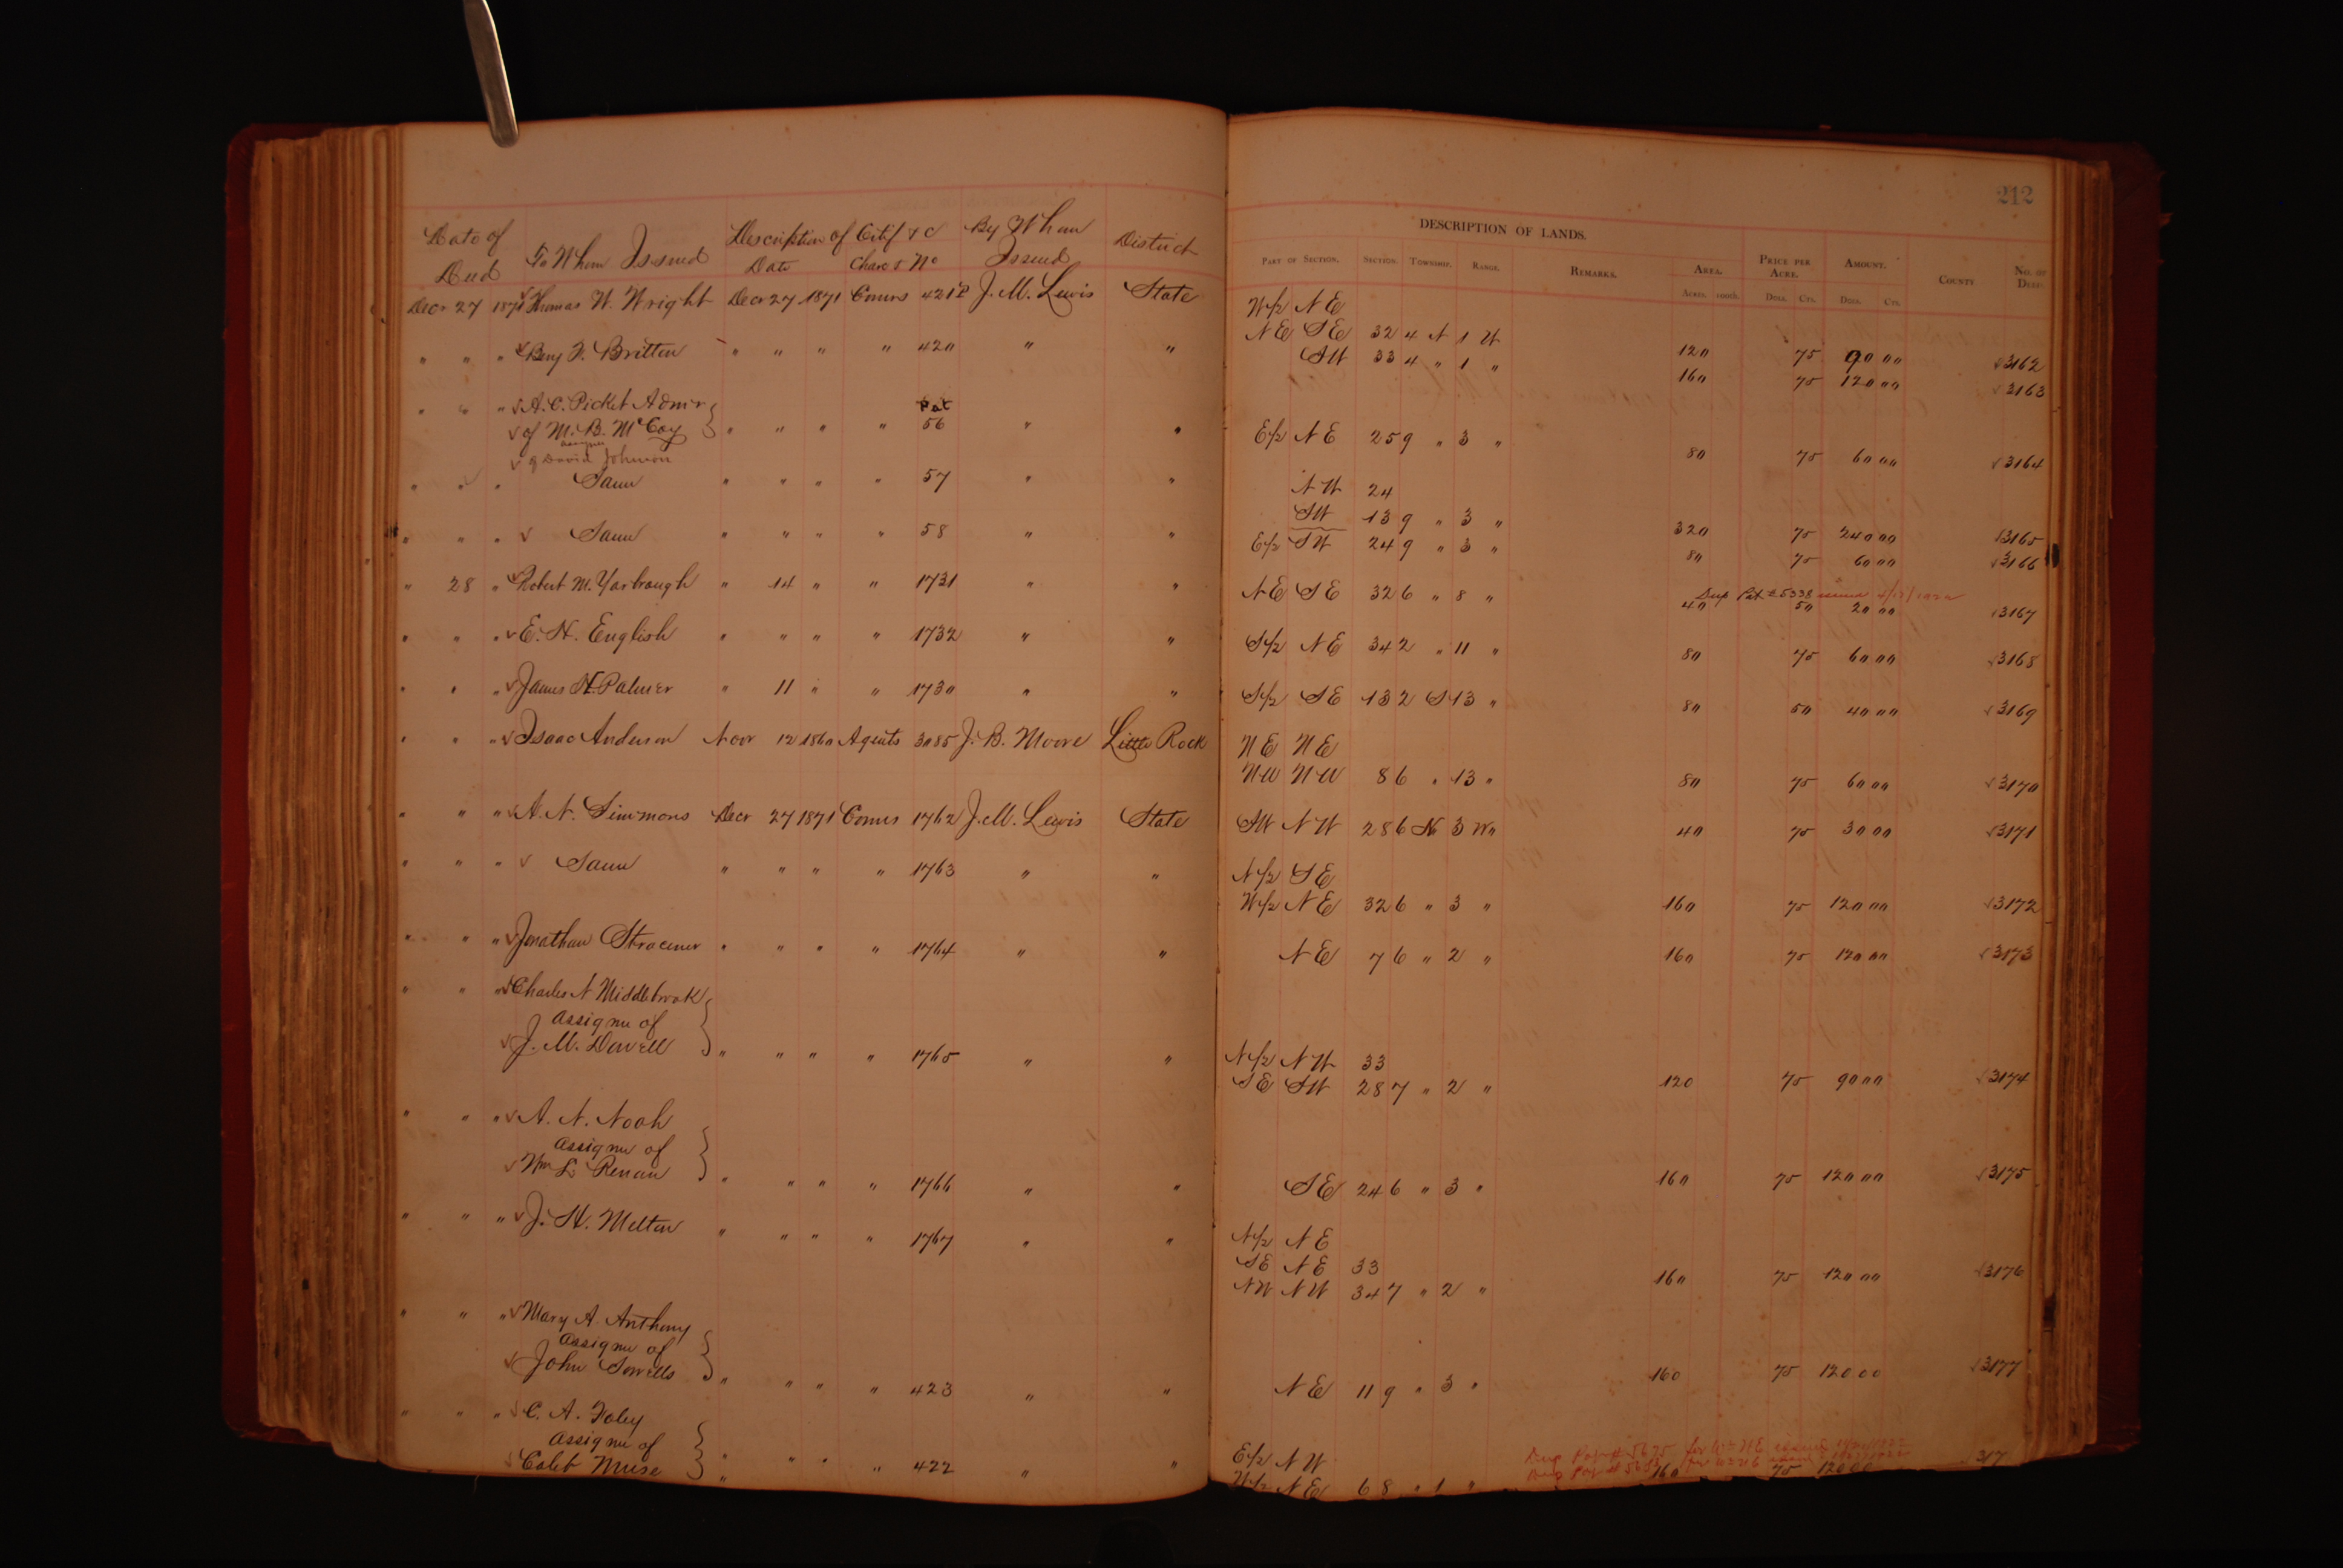 212
Date of Deed To Whom Issued Description of Certif &c By Whom Issued District
Date Charct No
DESCRIPTION OF LANDS.
PART OF SECTION. SECTION. TOWNSHIP. RANGE. REMARKS. AREA. PRICE PER ACRE. AMOUNT. COUNTY NO. OF DEED
ACRES. 100th. DOLL. CTS. DOLL. CTS.
Decr 27 1871 Thomas W. Wright Decr 27 1871 Comrs 421½ J. M. Lewis State W/2 NE
NE SE 32 4 N 1 W 120 75 90 00 3162
" " " Benj F. Britton " " " " 420 " " SW 33 4 " 1 " 160 75 120 00 3163
" " " A. C. Picket Admr
of M. B. McCoy " " " " Pat 56 " " E/2 NE 25 9 " 3 " 80 75 60 00 3164
assignee of David Johnson
" " " Same " " " " 57 " " NW 24
SW 13 9 " 3 " 320 75 240 00 3165
" " " Same " " " " 58 " " E/2 SW 24 9 " 3 " 80 75 60 00 3166
Dup Pat # 5338 issued
" 28 " Robert M. Yarbrough " 14 " " 1731 " " NE SE 32 6 " 8 " 40 50 20 00 3167
" " " E. H. English " " " " 1732 " " S/2 NE 34 2 " 11 " 80 75 60 00 3168
" " " James H Palmer " 11 " " 1730 " " S/2 SE 13 2 S 13 " 80 50 40 00 3169
" " " Isaac Anderson Novr 12 1860 Agents 3085 J. B. Moore Little Rock NE NE
NW NW 8 6 " 13 " 80 75 60 00 3170
" " " A. N. Simmons Decr 27 1871 Comrs 1762 J. M. Lewis State SW NW 28 6 N 3 W 40 75 30 00 3171
" " " Same " " " " 1763 " " N/2 SE
W/2 NE 32 6 " 3 " 160 75 120 00 3172
" " " Jonathan Stracener " " " " 1764 " " NE 7 6 " 2 " 160 75 120 00 3173
" " " Charles N Middlebrook
Assignee of
J. M. Dowell " " " " 1765 " " N/2 NW 33
SE SW 28 7 " 2 " 120 75 90 00 3174
" " " A. N. Noah
Assignee of
Wm L Renau " " " " 1766 " " SE 24 6 " 3 " 160 75 120 00 3175
" " " J. H. Melton " " " " 1767 " " N/2 NE
SE NE 33
NW NW 34 7 " 2 " 160 75 120 00 3176
" " " Mary A Anthony
Assignee of
John Sowells " " " " 423 " " NE 11 9 " 3 " 160 75 120 00 3177
" " " C. A. Foley
Assignee of
Caleb Muse " " " " 422 " " E/2 NW
Dup Pat # 5675 for
Dup Pat #
W/2 NE 6 8 " 1 " 160 75 120 00 317